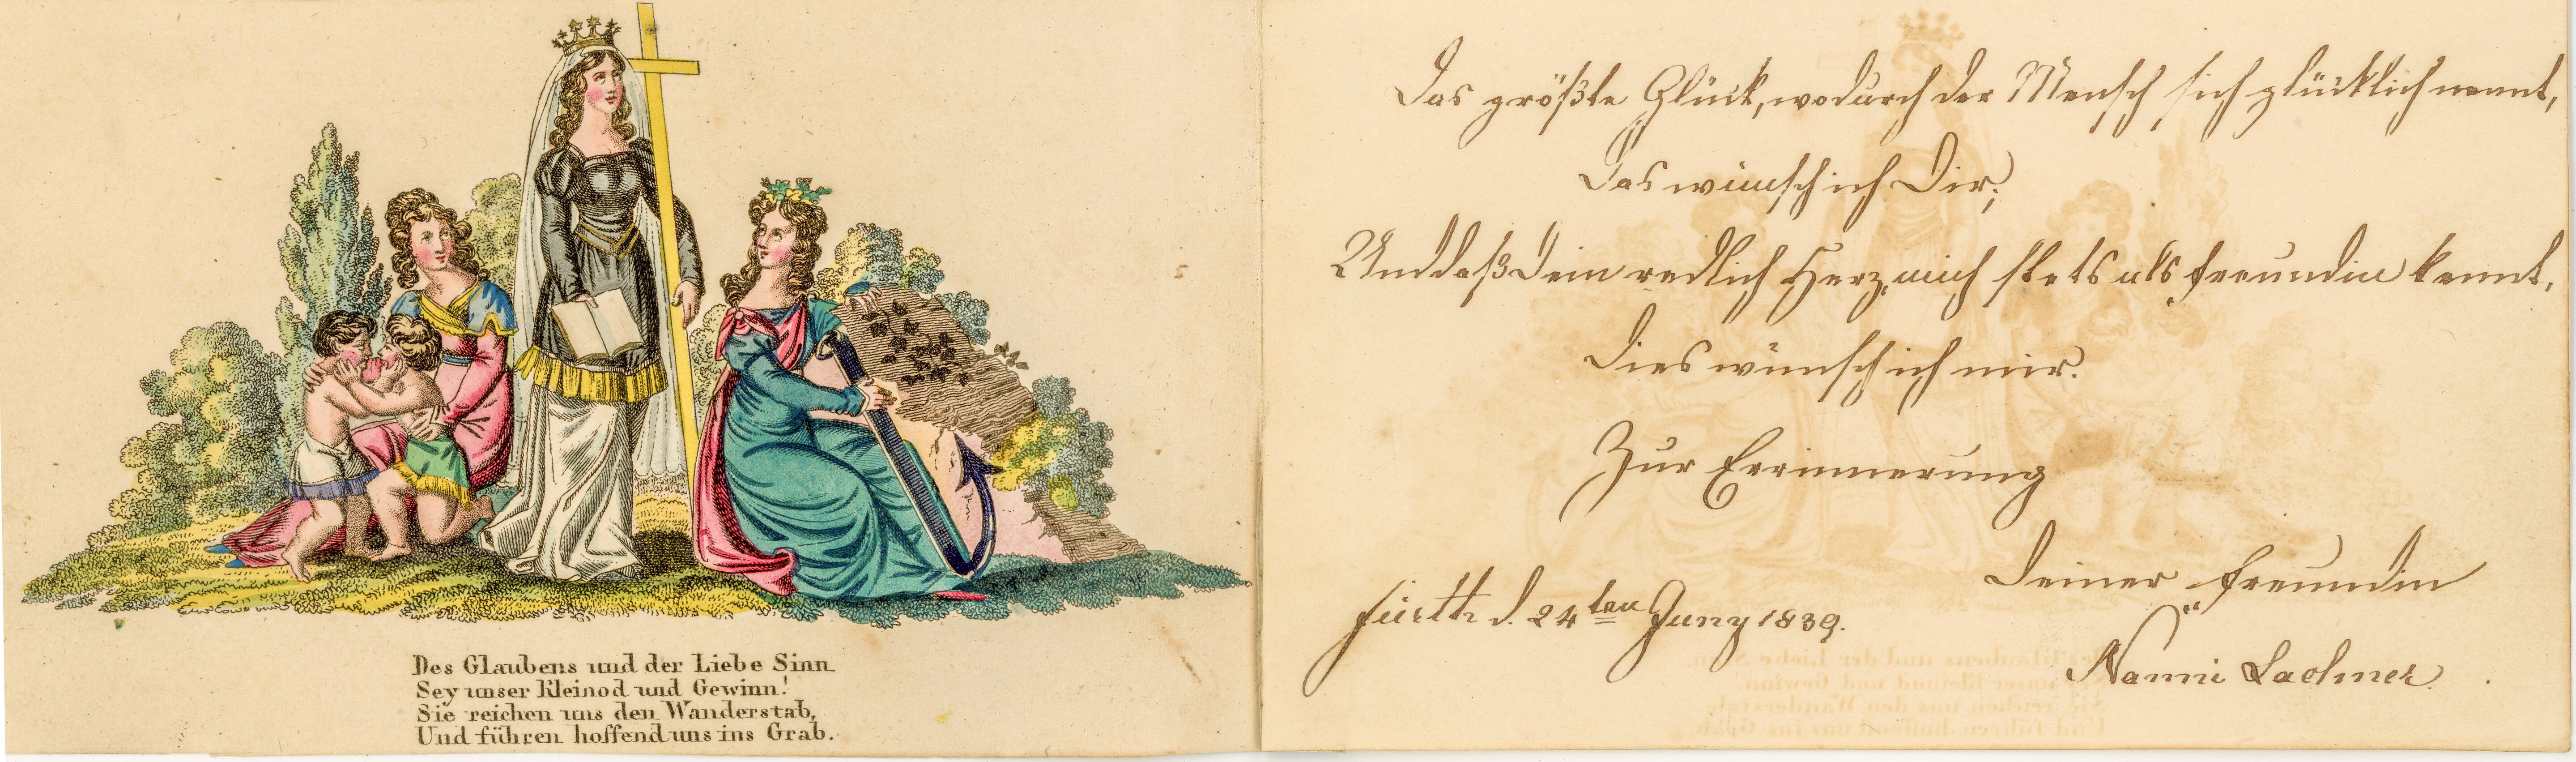 Des Glaubens und der Liebe Sinn
Sey unser Kleinod und Gewinn!
Sie reichen uns den Wanderstab,
Und führen hoffend uns ins Grab.
Das größte Glück, wodurch der Mensch sich glücklich nennt,
Das wünsch ich Dir;
Und daß Dein redlich Herz, mich stets als Freundin kennt,
Dies wünsch ich mir.
Zur Errinnerung
Deiner Freundin
Fürth d. 24ten Juny 1839.
Nanni